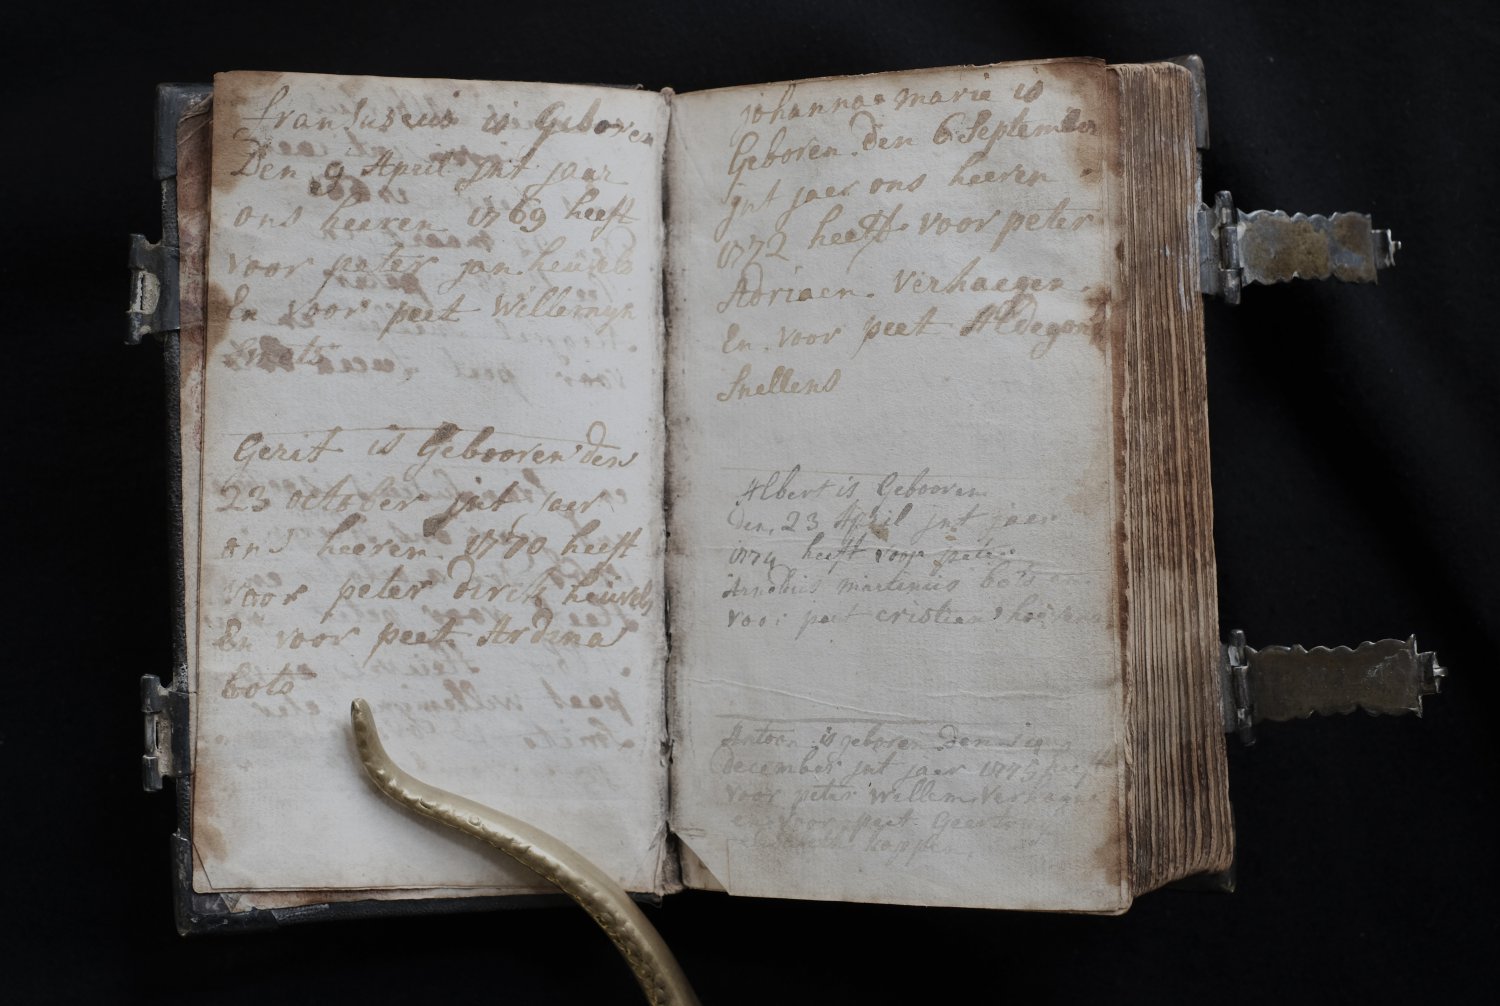 fransuscus is Geboren
Den 9 April jnt jaar
ons heeren 1769 heeft
voor peter jan heuvels
En voor peet Willemyn
smets
Gerit is Gebooren den
23 october jnt jaer
ons heeren 1770 heeft
voor peter dirck heuvels
En voor peet Ardina
bots
johanna marie is
Geboren den 6 September
jnt jaer ons heeren
1772 heeft voor peter
Adriaen Verhaegen
En voor peet Aldegond
Snellens
Albert is Gebooren
den 23 April jnt jaer
1774 heeft voor peter
Arnoldus martinus bots en
voor peet cristien
Antoon is geboren Den
december jnt jaer 1775 heeft
voor peter Willem Verhagen
en voor peet